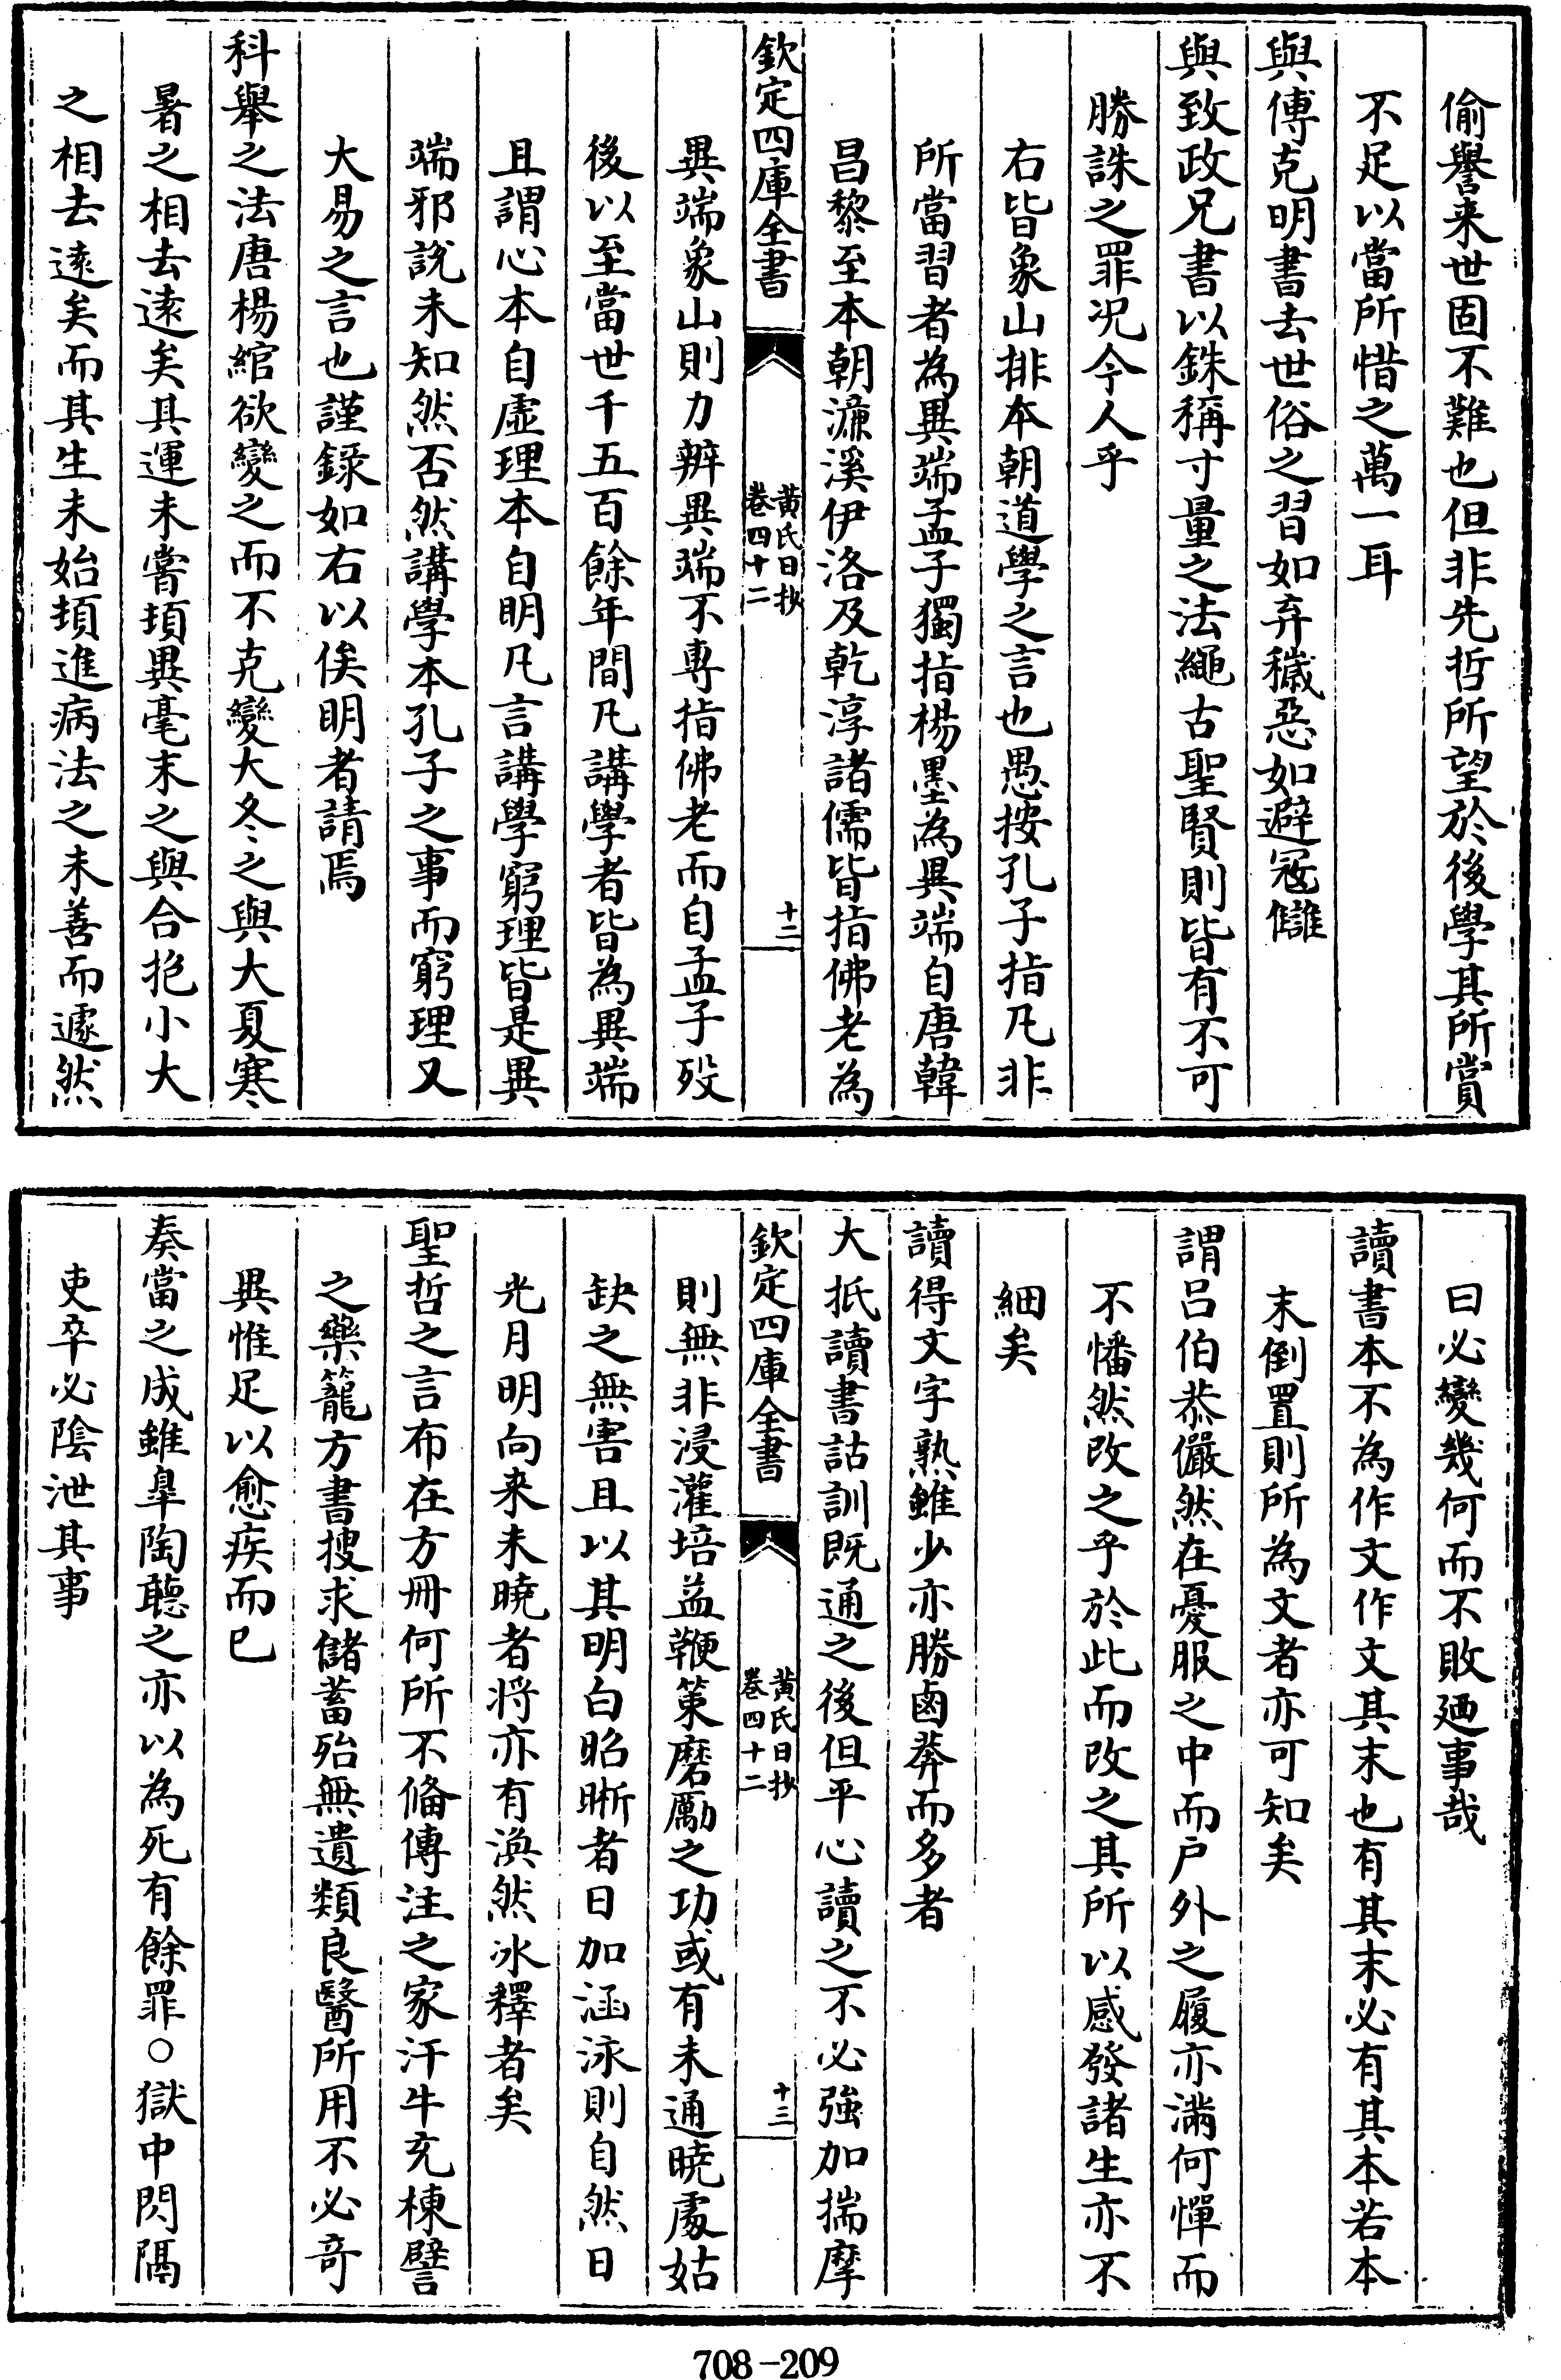 偷譽来世固不難也但非先哲所望於後學其所賞
不足以當所惜之萬一耳
與傅克明書去世俗之習如弃穢惡如避冦讎
與致政兄書以銖稱寸量之法繩古聖賢則皆有不可
勝誅之罪况今人乎
右皆象山排本朝道學之言也愚按孔子指凡非
所當習者為異端孟子獨指楊墨為異端自唐韓
昌黎至本朝濂溪伊洛及乾淳諸儒皆指佛老為
欽定四庫全書
黄氏日抄
卷四十二
十二
異端象山則力辨異端不專指佛老而自孟子歿
後以至當世千五百餘年間凡講學者皆為異端
且謂心本自虚理本自明凡言講學窮理皆是異
端邪説未知然否然講學本孔子之事而窮理又
大易之言也謹録如右以俟明者請焉
科舉之法唐楊綰欲變之而不克變大冬之與大夏寒
暑之相去逺矣其運未嘗頃異毫末之與合抱小大
之相去逺矣而其生未始頃進病法之未善而遽然
曰必變幾何而不敗廼事哉
讀書本不為作文作文其末也有其末必有其本若本
末倒置則所為文者亦可知矣
謂吕伯恭儼然在憂服之中而户外之履亦滿何憚而
不憣然改之乎於此而改之其所以感發諸生亦不
細矣
讀得文字熟雖少亦勝鹵莾而多者
大抵讀書詁訓既通之後但平心讀之不必強加揣摩
欽定四庫全書
黄氏日抄
卷四十二
十三
則無非浸灌培益鞭策磨勵之功或有未通曉處姑
缺之無害且以其明白昭晰者日加涵泳則自然日
光月明向来未曉者將亦有渙然冰釋者矣
聖哲之言布在方冊何所不備傳注之家汗牛充棟譬
之藥籠方書搜求儲蓄殆無遺類良醫所用不必竒
異惟足以愈疾而已
奏當之成雖臯陶聽之亦以為死有餘罪○獄中閉隔
吏卒必隂泄其事
708-209